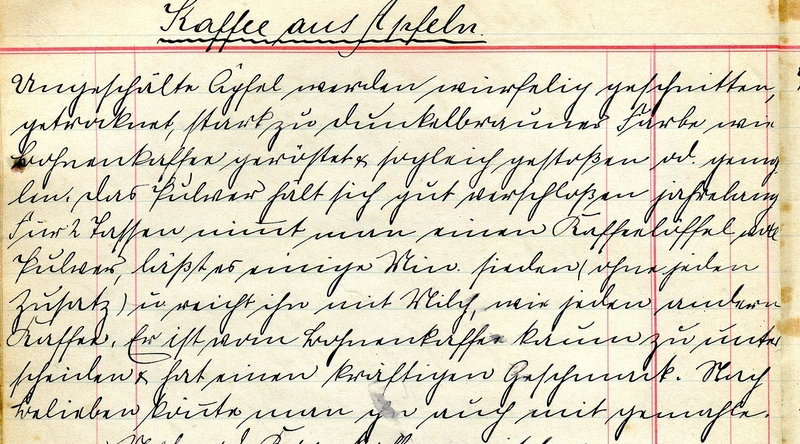 Kaffee aus Äpfeln.
Ungeschälte Äpfel werden würfelig geschnitten,
getrocknet, stark zu dunkelbrauner Farbe wie
Bohnenkaffee geröstet & sogleich gestoßen od. gema
len. Das Pulver hält sich gut verschloßen jahrelang
Für 2 Tassen nimt man einen Kaffeelöffel voll
Pulver, läßt es einige Min. sieden (ohne jeden
Zusatz) u reicht ihn mit Milch, wie jeden andern
Kaffee. Er ist vom Bohnenkaffee kaum zu unter
scheiden & hat einen kräftigen Geschmack. Nach
Belieben könte man ihn auch mit gemahle.